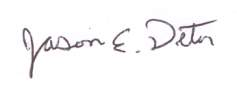 Jason E. Deter